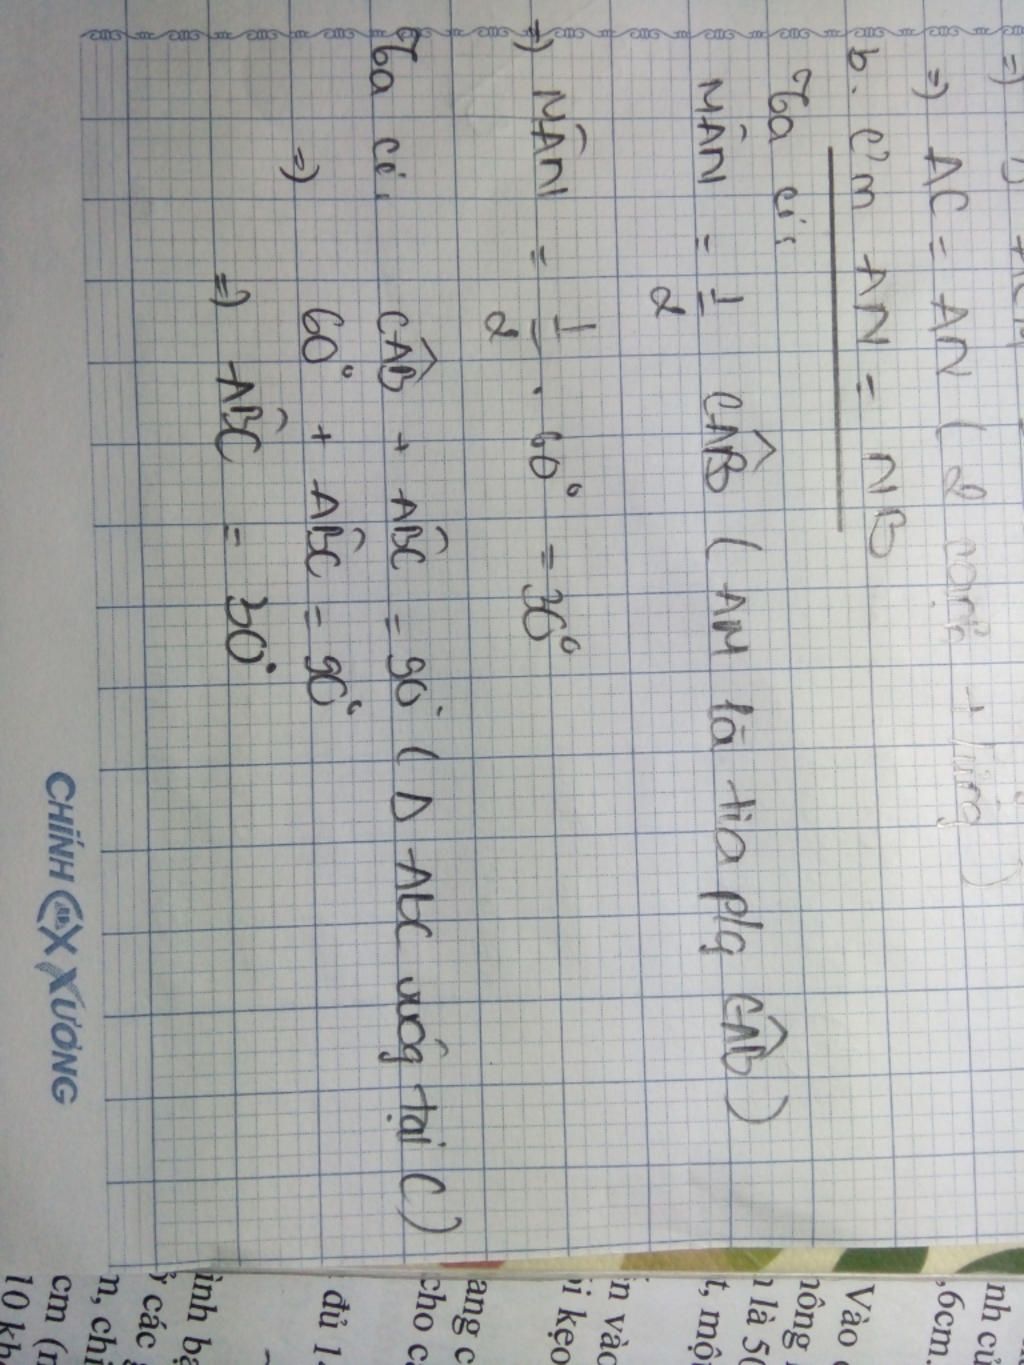 => AC = AN ( 2 cạnh t/ứng )
b. C/m AN = NB
Ta có:
MÂN = 1/2 CÂB ( AM là tia p/g CÂB )
=> MÂN = 1/2 . 60° = 30°
Ta có: CÂB + ABC = 90° ( Δ ABC vuôg tại C )
=> 60° + ABC = 90°
=> ABC = 30°
CHÍNH XƯƠNG
nh
,6cm
Vào
hông
là 50
t, một
vào
i kẹo
ang c
cho
đủ 1
ình
các
n, ch
cm
10